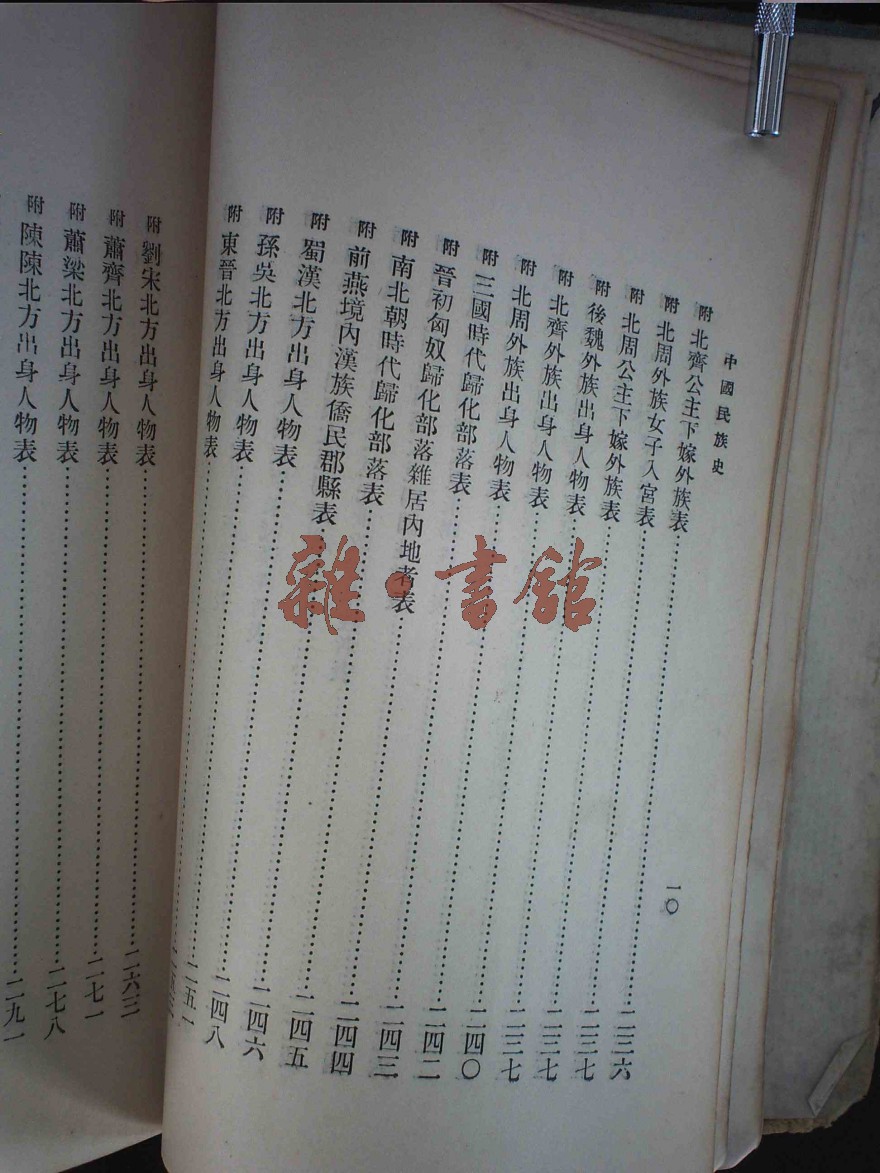 中國民族史 一〇
附 北齊公主下嫁外族表……二三六
附 北周外族女子入宮表……二三七
附 北周公主下嫁外族表……二三七
附 後魏外族出身人物表……二三七
附 北齊外族出身人物表……二四〇
附 北周外族出身人物表……二四二
附 三國時代歸化部落表……二四三
附 晉初匈奴歸化部落雜居內地者表……二四四
附 南北朝時代歸化部落表……二四五
附 前燕境內漢族僑民郡縣表……二四六
附 蜀漢北方出身人物表……二四八
附 孫吳北方出身人物表……二五一
附 東晉北方出身人物表……
附 劉宋北方出身人物表……二六三
附 蕭齊北方出身人物表……二七一
附 蕭梁北方出身人物表……二七八
附 陳陳北方出身人物表……二九一
雜·書館